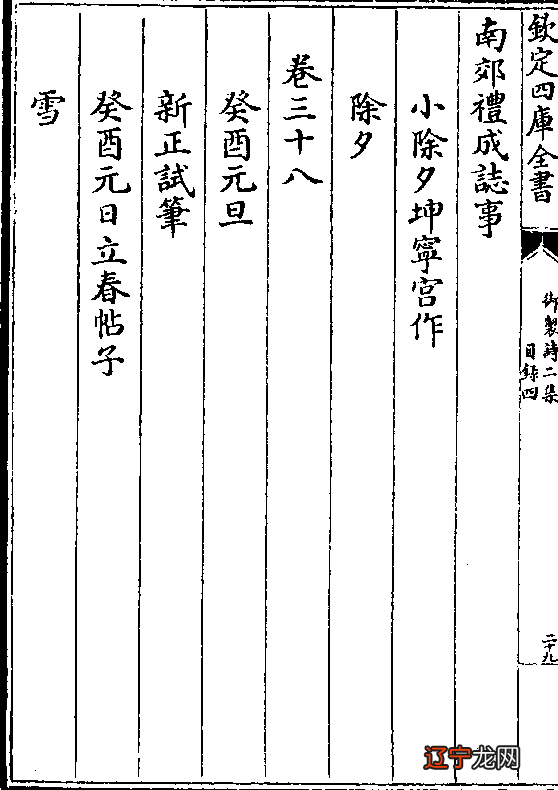 欽定四庫全書
御製詩二集
目録四
二十九
南郊禮成誌事
小除夕坤寧宮作
除夕
卷三十八
癸酉元旦
新正試筆
癸酉元日立春帖子
雪
辽宁龙网